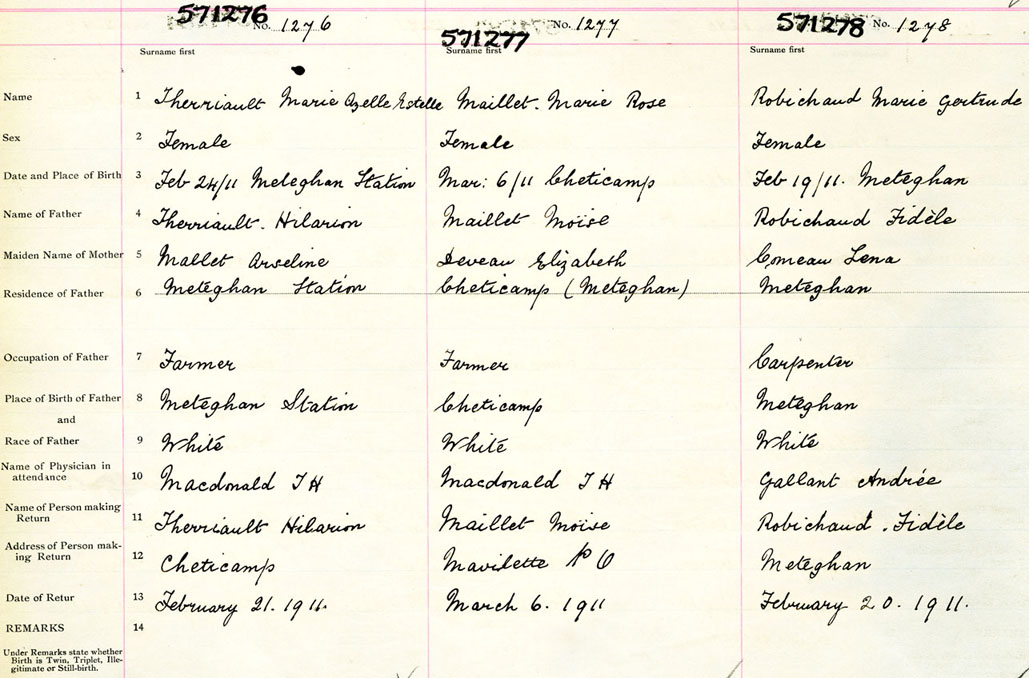 571276 No. 1276 571277 No. 1277 571278 No. 1278
Surname first Surname first Surname first
Name 1 Therriault Marie Ozelle Estelle Maillet. Marie Rose Robichaud Marie Gertrude
Sex 2 Female Female Female
Date and Place of Birth 3 Feb 24/11 Meteghan Station Mar: 6/11 Cheticamp Feb 19/11. Meteghan
Name of Father 4 Therriault. Hilarion Maillet Moïse Robichaud Fidèle
Maiden Name of Mother 5 Mallet Arseline Deveau Elizabeth Comeau Lena
Residence of Father 6 Meteghan Station Cheticamp (Meteghan) Meteghan
Occupation of Father 7 Farmer Farmer Carpenter
Place of Birth of Father 8 Meteghan Station Cheticamp Meteghan
and
Race of Father 9 White White White
Name of Physician in
attendance 10 Macdonald T H Macdonald T H Gallant Andrée
Name of Person making
Return 11 Therriault Hilarion Maillet Moise Robichaud. Fidèle
Address of Person mak-
ing Return 12 Cheticamp Mavilette P O Meteghan
Date of Retur 13 February 21. 1911. March 6. 1911 February 20. 1911.
REMARKS 14
Under Remarks state whether
Birth is Twin, Triplet, Ille-
gitimate or Still-birth.